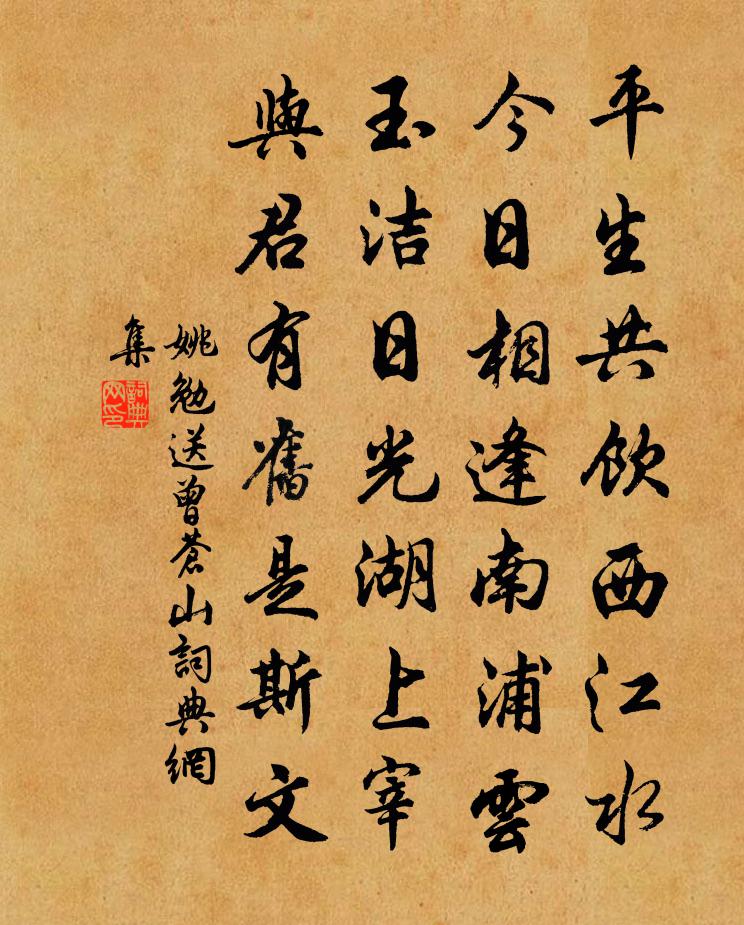 平生共飲西江水
今日相逢南浦雲
玉洁日光湖上宰
與君有舊是斯文
姚勉送曾蒼山詞典網
集
詞典网印